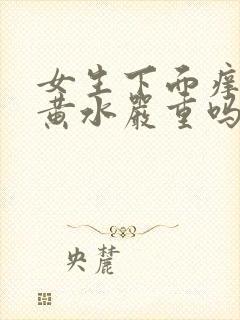 女生下面痒
黄水严重吗
央麓